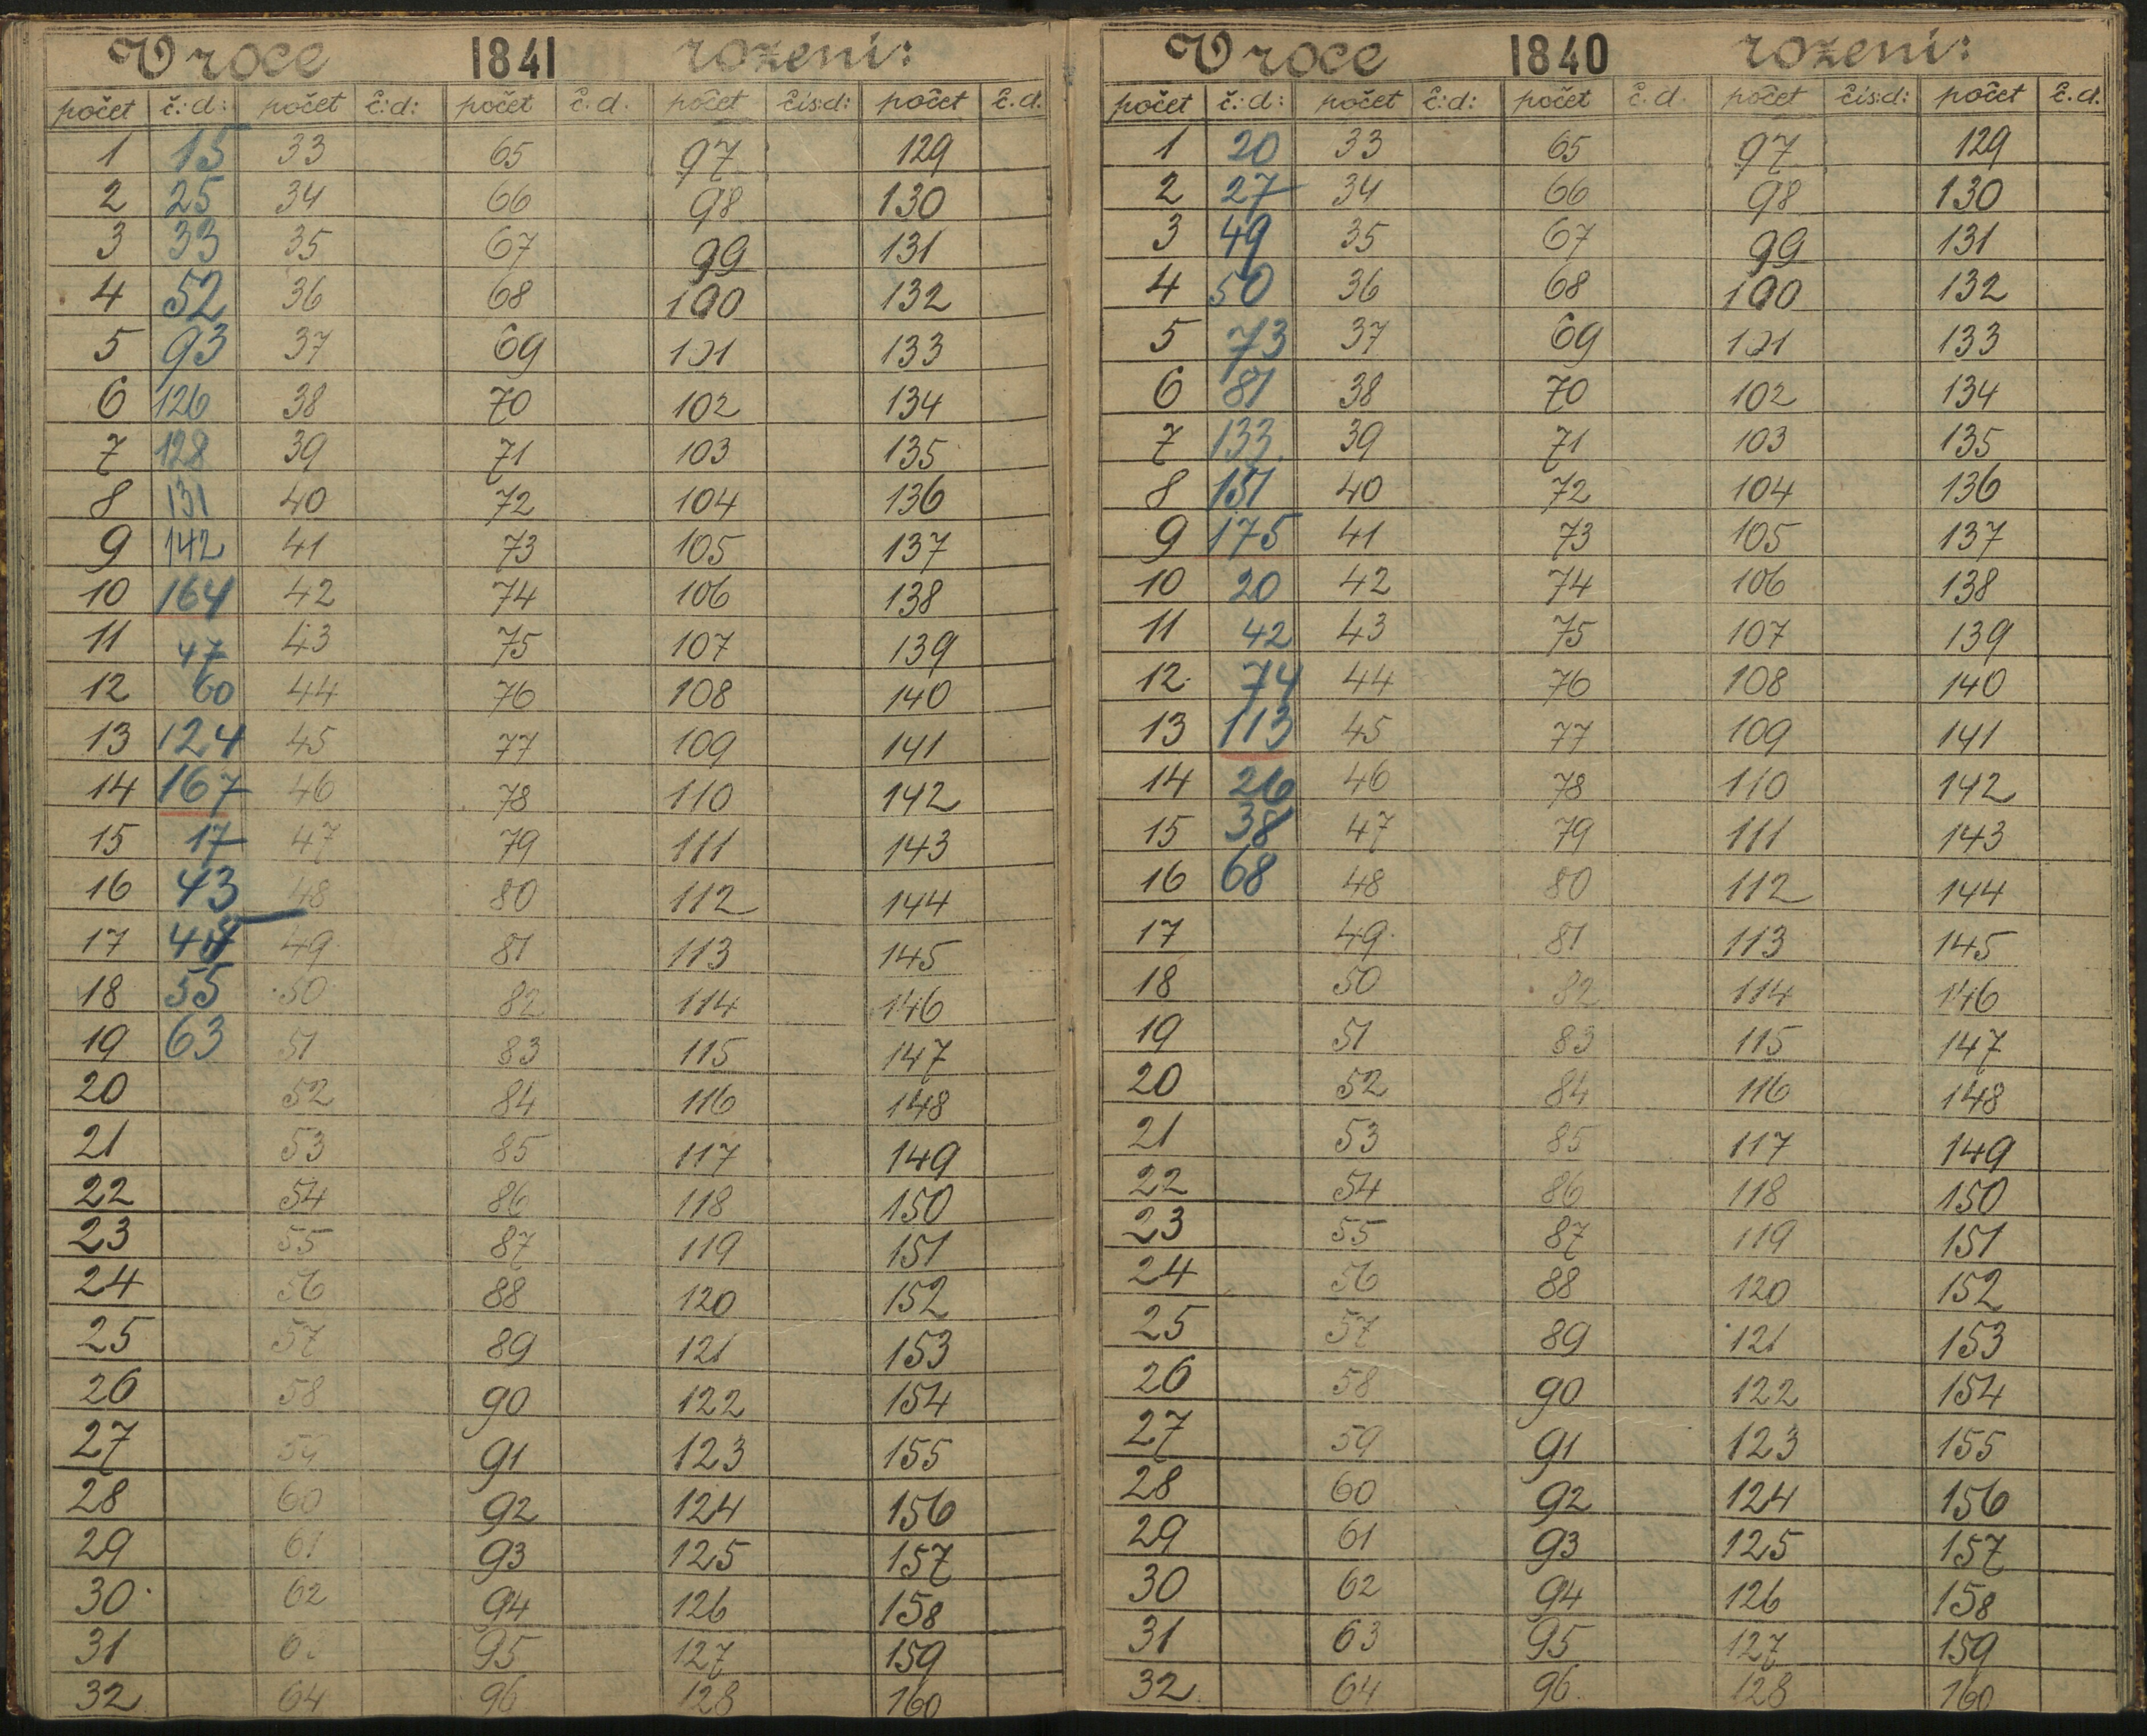 V roce 1841 rozeni:
počet č.:d: počet č:d: počet č.d. počet čís:d: počet č.d.
1 15 33 65 97 129
2 25 34 66 98 130
3 33 35 67 99 131
4 52 36 68 100 132
5 93 37 69 101 133
6 126 38 70 102 134
7 128 39 71 103 135
8 131 40 72 104 136
9 142 41 73 105 137
10 164 42 74 106 138
11 47 43 75 107 139
12 60 44 76 108 140
13 124 45 77 109 141
14 167 46 78 110 142
15 17 47 79 111 143
16 43 48 80 112 144
17 49 81 113 145
18 55 50 82 114 146
19 63 51 83 115 147
20 52 84 116 148
21 53 85 117 149
22 54 86 118 150
23 55 87 119 151
24 56 88 120 152
25 57 89 121 153
26 58 90 122 154
27 59 91 123 155
28 60 92 124 156
29 61 93 125 157
30 62 94 126 158
31 95 127 159
32 64 96 128 160
V roce 1840 rozeni:
počet č.:d: počet č:d: počet č.d. počet čís:d: počet č.d.
1 20 33 65 97 129
2 27 34 66 98 130
3 49 35 67 99 131
4 50 36 68 100 132
5 73 37 69 101 133
6 81 38 70 102 134
7 133 39 71 103 135
8 151 40 72 104 136
9 175 41 73 105 137
10 20 42 74 106 138
11 42 43 75 107 139
12 74 44 76 108 140
13 113 45 77 109 141
14 26 46 78 110 142
15 38 47 79 111 143
16 68 48 80 112 144
17 49 81 113 145
18 50 82 114 146
19 51 83 115 147
20 52 84 116 148
21 53 85 117 149
22 54 86 118 150
23 55 87 119 151
24 56 88 120 152
25 57 89 121 153
26 58 90 122 154
27 59 91 123 155
28 60 92 124 156
29 61 93 125 157
30 62 94 126 158
31 63 95 127 159
32 64 96 128 160